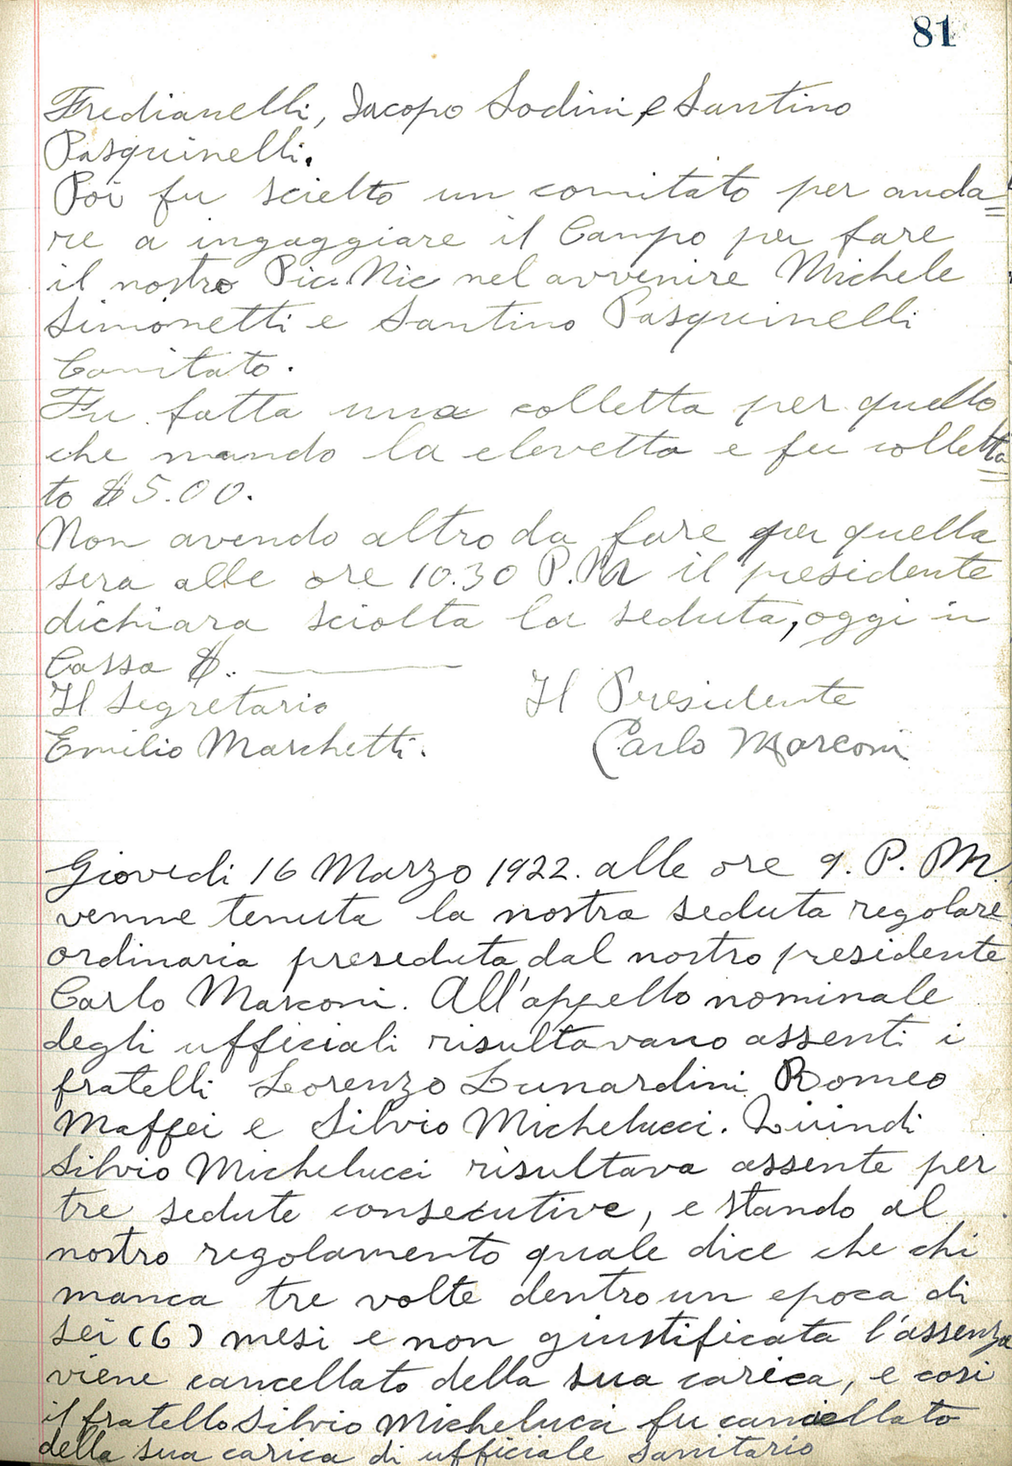 81
Fredianelli, Jacopo Sodini e Santino
Pasquinelli.
Poi fu scielto un comitato per anda=
re a ingaggiare il Campo per fare
il nostro Pic. Nic nel avvenire Michele
Simonetti e Santino Pasquinelli
Comitato.
Fu fatta una colletta per quello
che mando la elevetta e fu colletta=
to $5.00.
Non avendo altro da fare per quella
sera alle ore 10.30 P.M il presidente
dichiara sciolta la seduta, oggi in
Cassa $.
Il Segretario Il Presidente
Emilio Marchetti. Carlo Marconi
Giovedi 16 Marzo 1922. alle ore 9. P. M.
venne tenuta la nostra seduta regolare
ordinaria preseduta dal nostro presidente
Carlo Marconi. All'appello nominale
degli ufficiali risultavano assenti i
fratelli Lorenzo Lunardini Romeo
Maffei e Silvio Michelucci. Quindi
Silvio Michelucci risultava assente per
tre sedute consecutive, e stando al
nostro regolamento quale dice che chi
manca tre volte dentro un epoca di
sei (6) mesi e non giustificata l'assenza
viene cancellato della sua carica, e cosi
il fratello Silvio Micheluci fu cancellato
della sua carica di ufficiale sanitario